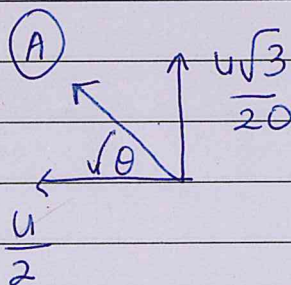 A
u√3
20
√θ
u
2